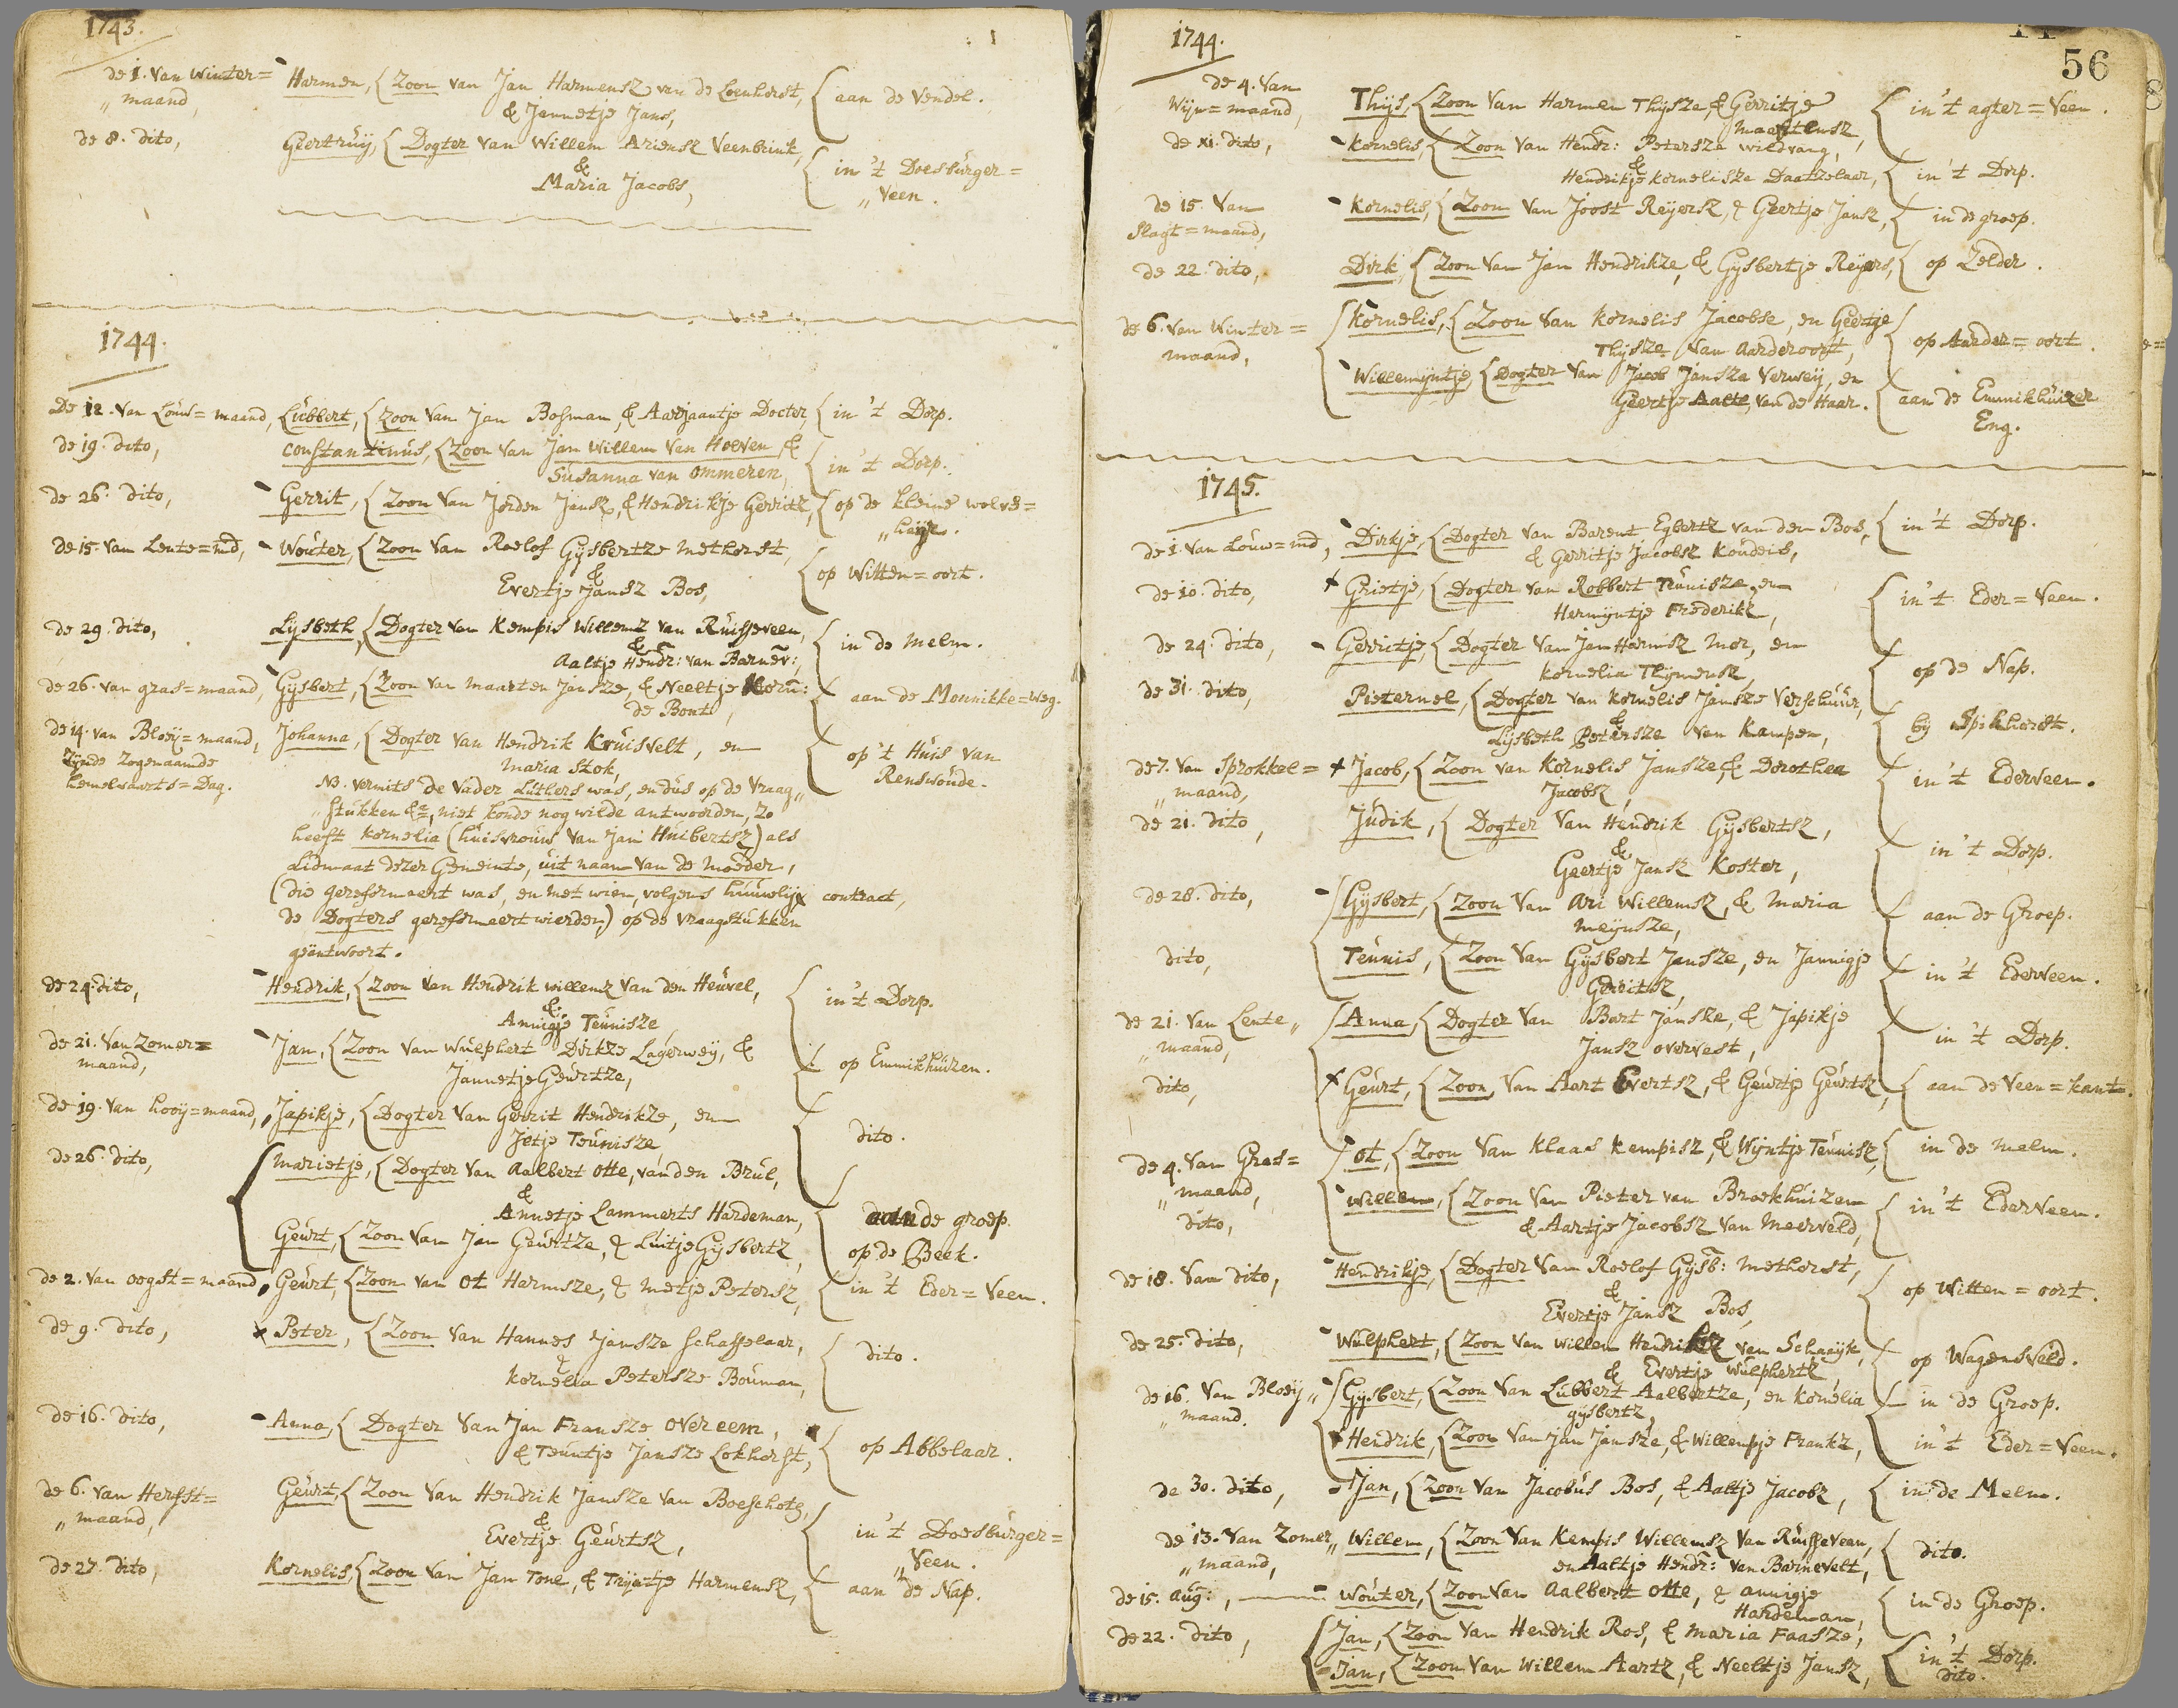 1743.
de 1. van Winter= Harmen, { Zoon van Jan Harmensz van de Loenhorst, { aan de Vendel.
„ maand, & Jannetje Jans,
de 8. dito, Geertruij, { Dogter van Willem Ariensz Veenbrink, { in 't Doesburger=
& „ Veen.
Maria Jacobs,
1744.
De 12. van Louw=maand, Lubbert, { Zoon van Jan Bosman, & Aarjaantje Docter, { in 't Dorp.
de 19. dito, Constantinus, { Zoon van Jan Willem van Hoeven & { in 't Dorp.
Susanna van Ommeren,
de 26. dito, Gerrit, { Zoon van Jorden Jansz, & Hendrikje Gerritz, { op de kleine wolvs=
de 15. van Lente=md, Wouter, { Zoon van Roelof Gysbertze Methorst, { op Witten=oort.
&
Evertje Jansz Bos,
de 29. dito, Lysbeth, { Dogter van Kempis Willemz van Ruiffeveen, { in de Melm.
&
Aaltje Hendr: van Barnev:,
de 26. van gras=maand, Gysbert, { Zoon van Maarten Jansze, & Neeltje Korn: { aan de Monnikke=weg.
de Bont,
de 14. van Bloey=maand, Johanna, { Dogter van Hendrik Kruisvelt, en { op 't Huis van
Zynde Zogenaamde Maria Stok, Renswoude.
hemelvaarts=Dag. NB. vermits de Vader Luthers was, en dus op de Vraag„
„ stukken &c, niet konde nog wilde antwoorden, zo
heeft Kornelia (huisvrouw van Jan Huibertsz) als
Lidmaat dezer Gemeinte, uit naam van de Moeder,
(die gereformeert was, en met wien, volgens huuwelyx contract,
de Dogters gereformeert wierden,) op de vraagstukken
geäntwoort.
de 24. dito, Hendrik, { Zoon van Hendrik Willemz van den Heuvel, { in 't Dorp.
&
Annigje Teunisze
de 21. van Zomer= Jan, { Zoon van Wulphert Dirkze Lagerweij, & { op Emmikhuizen.
maand, Jannetje Geurtze,
de 19. van hooy=maand, Japikje, { Dogter van Gerrit Hendrikze, en { dito.
Jetje Teunisze,
de 26. dito, Marietje, { Dogter van Aalbert Otte, van den Brul, { aan de groep.
&
Annetje Lammerts Hardeman,
Geurt, { Zoon van Jan Geurtze, & Luitje Gysbertz, op de Beek.
de 2. van oogst=maand, Geurt, { Zoon van Ot Harmsze, & Metje Petersz, { in 't Eder=Veen.
de 9. dito, x Peter, { Zoon van Hannes Jansze Schaffelaar, { dito.
&
Kornelia Petersze Bouman,
de 16. dito, Anna, { Dogter van Jan Fransze Overeem, { op Abbelaar.
& Teuntje Jansze Lokhorst,
de 6. van Herfst= Geurt, { Zoon van Hendrik Jansze van Boeschote, { in 't Doesburger=
„ maand, & „ Veen.
Evertje Geurtsz,
de 27. dito, Kornelis, { Zoon van Jan Tone, & Tryntje Harmensz, { aan de Nap.
1744.
56
de 4. van Thys, { Zoon van Harmen Thysze, & Gerritje { in 't agter=Veen.
Wyn=maand, Maartensz,
de 11. dito, Kornelis, { Zoon van Hendr: Petersze Wildvang, { in 't Dorp.
&
Hendrikje Kornelisze Daatzelaar,
de 15. van Kornelis, { Zoon van Joost Reyersz, & Geertje Jansz, { in de groep.
Slagt=maand,
de 22. dito, Dirk, { Zoon van Jan Hendrikze, & Gysbertje Reyers, { op Zelder.
de 6. van Winter= Kornelis, { Zoon van Kornelis Jacobse, en Geertje { op Aarder=oort.
maand, Thysze van Aarderoort,
Willemyntje, { Dogter van Jacob Jansze Verweij, en { aan de Emmikhuizer
Geertje Aalte, van de Haar. Eng.
1745.
de 1. van Louw=md, Dirkje, { Dogter van Barent Egbertz van den Bos, { in 't Dorp.
& Gerritje Jacobsz Koudeis,
de 10. dito, x Grietje, { Dogter van Robbert Teunisze, en { in 't Eder=Veen.
Hermyntje Frederikz,
de 24. dito, Gerritje, { Dogter van Jan Harmsz Mor, en { op de Nap.
Kornelia Thymensz,
de 31. dito, Pieternel, { Dogter van Kornelis Jansze Verschuur, { by Spikhorst.
&
Lysbeth Petersze van Kampen,
de 7. van Sprokkel= x Jacob, { Zoon van Kornelis Jansze, & Dorothea { in 't Ederveen.
„ maand, Jacobsz,
de 21. dito, Judik, { Dogter van Hendrik Gysbertsz, { in 't Dorp.
&
Geertje Jansz Koster,
de 28. dito, Gysbert, { Zoon van Ari Willemsz, & Maria { aan de Groep.
Meynsze,
dito, Teunis, { Zoon van Gysbert Jansze, en Jannigje { in 't Ederveen.
Gerritsz,
de 21. van Lente„ Anna, { Dogter van Bart Jansze, & Japikje { in 't Dorp.
„ maand, Jansz overvest,
dito, x Geurt, { Zoon van Aart Evertsz, & Geurtje Geurtsz, { aan de Veen=kant.
de 4. van Gras= Ot, { Zoon van Klaas Kempisz, & Wyntje Teunisz, { in de Melm.
„ maand,
dito, Willem, { Zoon van Pieter van Broekhuizen { in 't Ederveen.
& Aartje Jacobsz van Meerveld,
de 18. van dito, Hendrikje, { Dogter van Roelof Gysb: Methorst, { op Witten=oort.
&
Evertje Jansz Bos,
de 25. dito, Wulphert, { Zoon van Willem Hendriksz van Schaayk, { op Wagensveld.
& Evertje Wulphertz
de 16. van Bloey„ Gysbert, { Zoon van Lubbert Aalbertze, en Kornelia { in de Groep.
„ maand. gysbertz,
Hendrik, { Zoon van Jan Jansze, & Willempje Frankz, in 't Eder=Veen.
de 30. dito, Jan, { Zoon van Jacobus Bos, & Aaltje Jacobz, { in de Melm.
de 13. van Zomer„ Willem, { Zoon van Kempis Willemsz van Ruiffeveen, { dito.
„ maand, en Aaltje Hendr: van Barnevelt,
de 15. aug:, Wouter, { Zoon van Aalbert Otte, & annigje { in de Groep.
Hardeman,
de 22. dito, Jan, { Zoon van Hendrik Ros, & Maria Faasze, { in 't Dorp.
Jan, { Zoon van Willem Aartz, & Neeltje Jansz, dito.